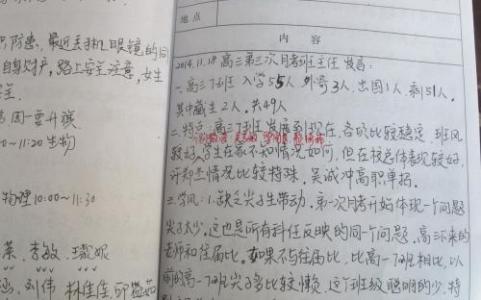 识,防患,最近丢手机眼镜的同
自身财产,路上安全注意,女生
全.
周一要升旗
0~11:20 生物
物理 10:00~11:30
英,李敏,
刘伟 林佳佳,
地点
内容
2014.11.18 高三第三次月考班主任发言:
一.高三7班 入学55人 外寄3人,出国1人,剩51人,
其中藏生2人,共49人
二.特点:高三7班发展到现在,各的比较稳定,班风
较好,学生在家不知情况如何,但在校总体表现较好,
许郑杰情况比较特殊,吴诚冲高职单招.
三.学风:1.缺乏尖子生带动,第一次月考开始体现一个问题
尖子太少,这也是所有科任反映的同一个问题,高三下来的
老师和往届比,如果不与往届比,比高一7班相比,以
前的高一7班尖子多比较懒,这7班级聪明的少,特